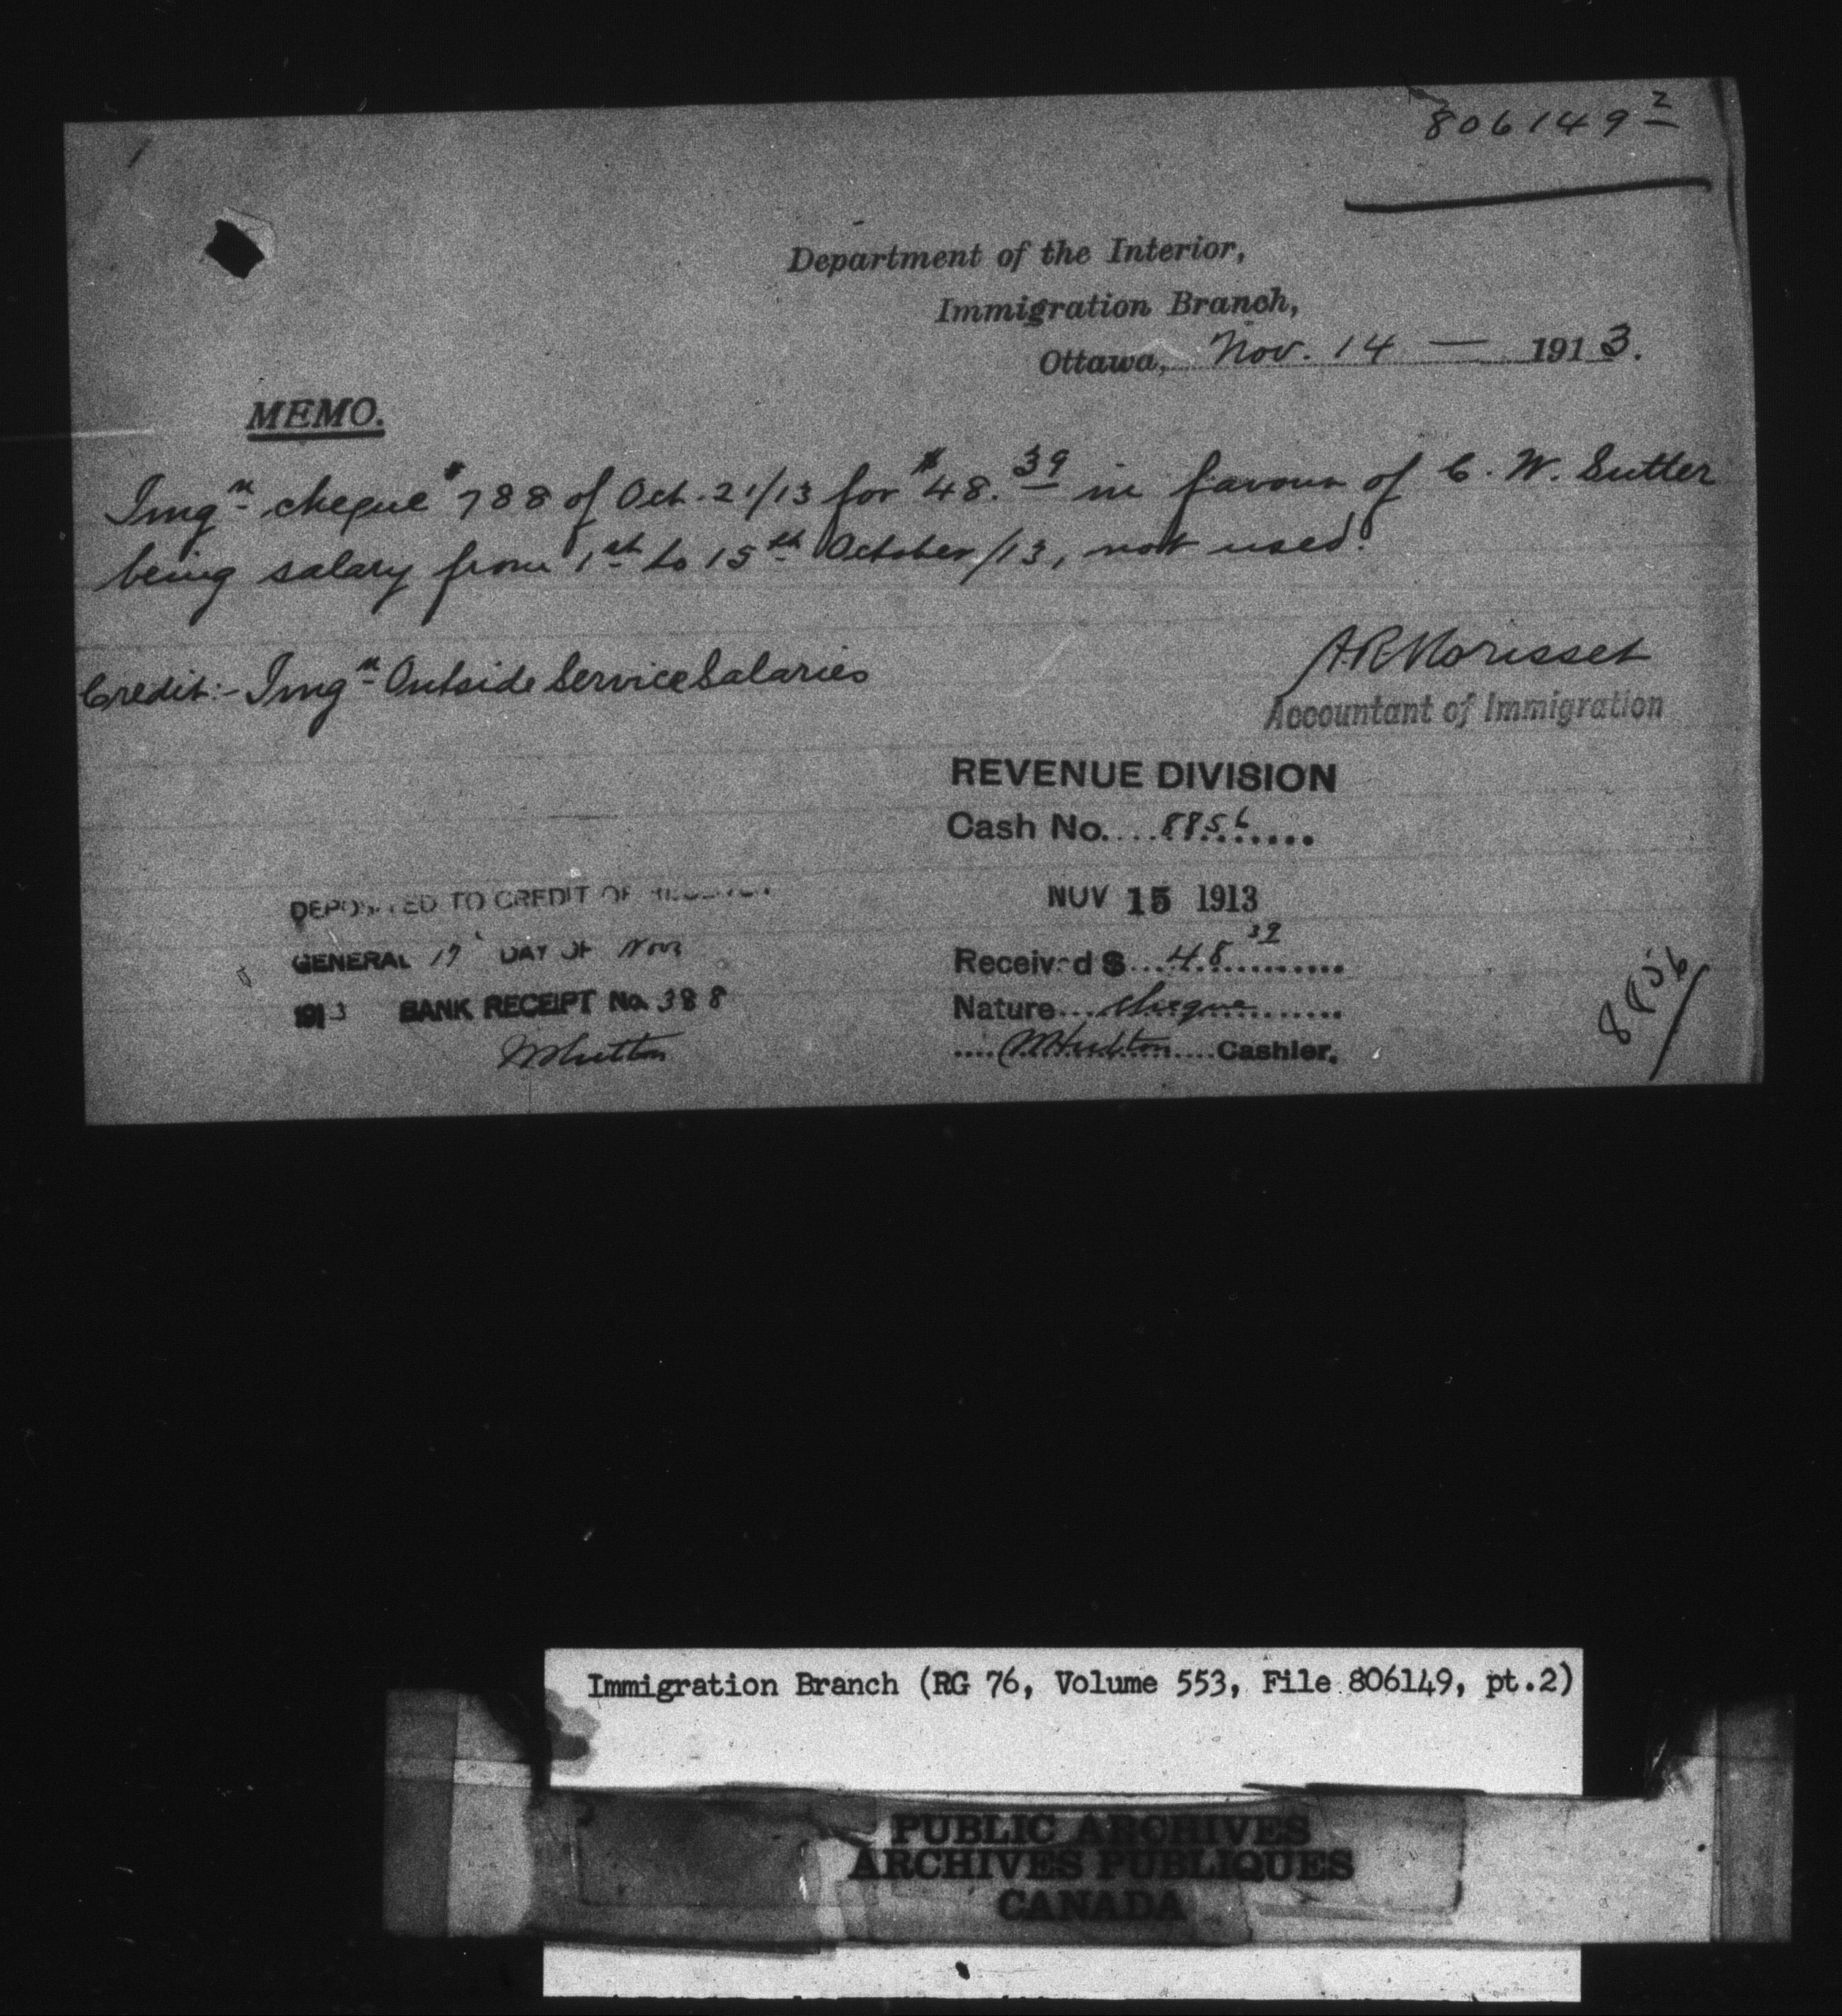 806149 2
Department of the Interior,
Immigration Branch,
Ottawa, Nov. 14 — 1913.
MEMO.
Imgn cheque #788 of Oct. 21/13 for $48.39 in favour of C. W. Sutter
being salary from 1st to 15th October/13, not used.
Credit:- Imgn Outside Service Salaries
A.R. Morisset
Accountant of Immigration
REVENUE DIVISION
Cash No....8856.......
NOV 15 1913
Received $...48.39..........
Nature...cheque.......
....MHutton....Cashier.
DEPOSITED TO CREDIT OF
GENERAL 17 DAY OF Nov
1913 BANK RECEIPT No. 388
MHutton
8856
Immigration Branch (RG 76, Volume 553, File 806149, pt.2)
PUBLIC ARCHIVES
ARCHIVES PUBLIQUES
CANADA